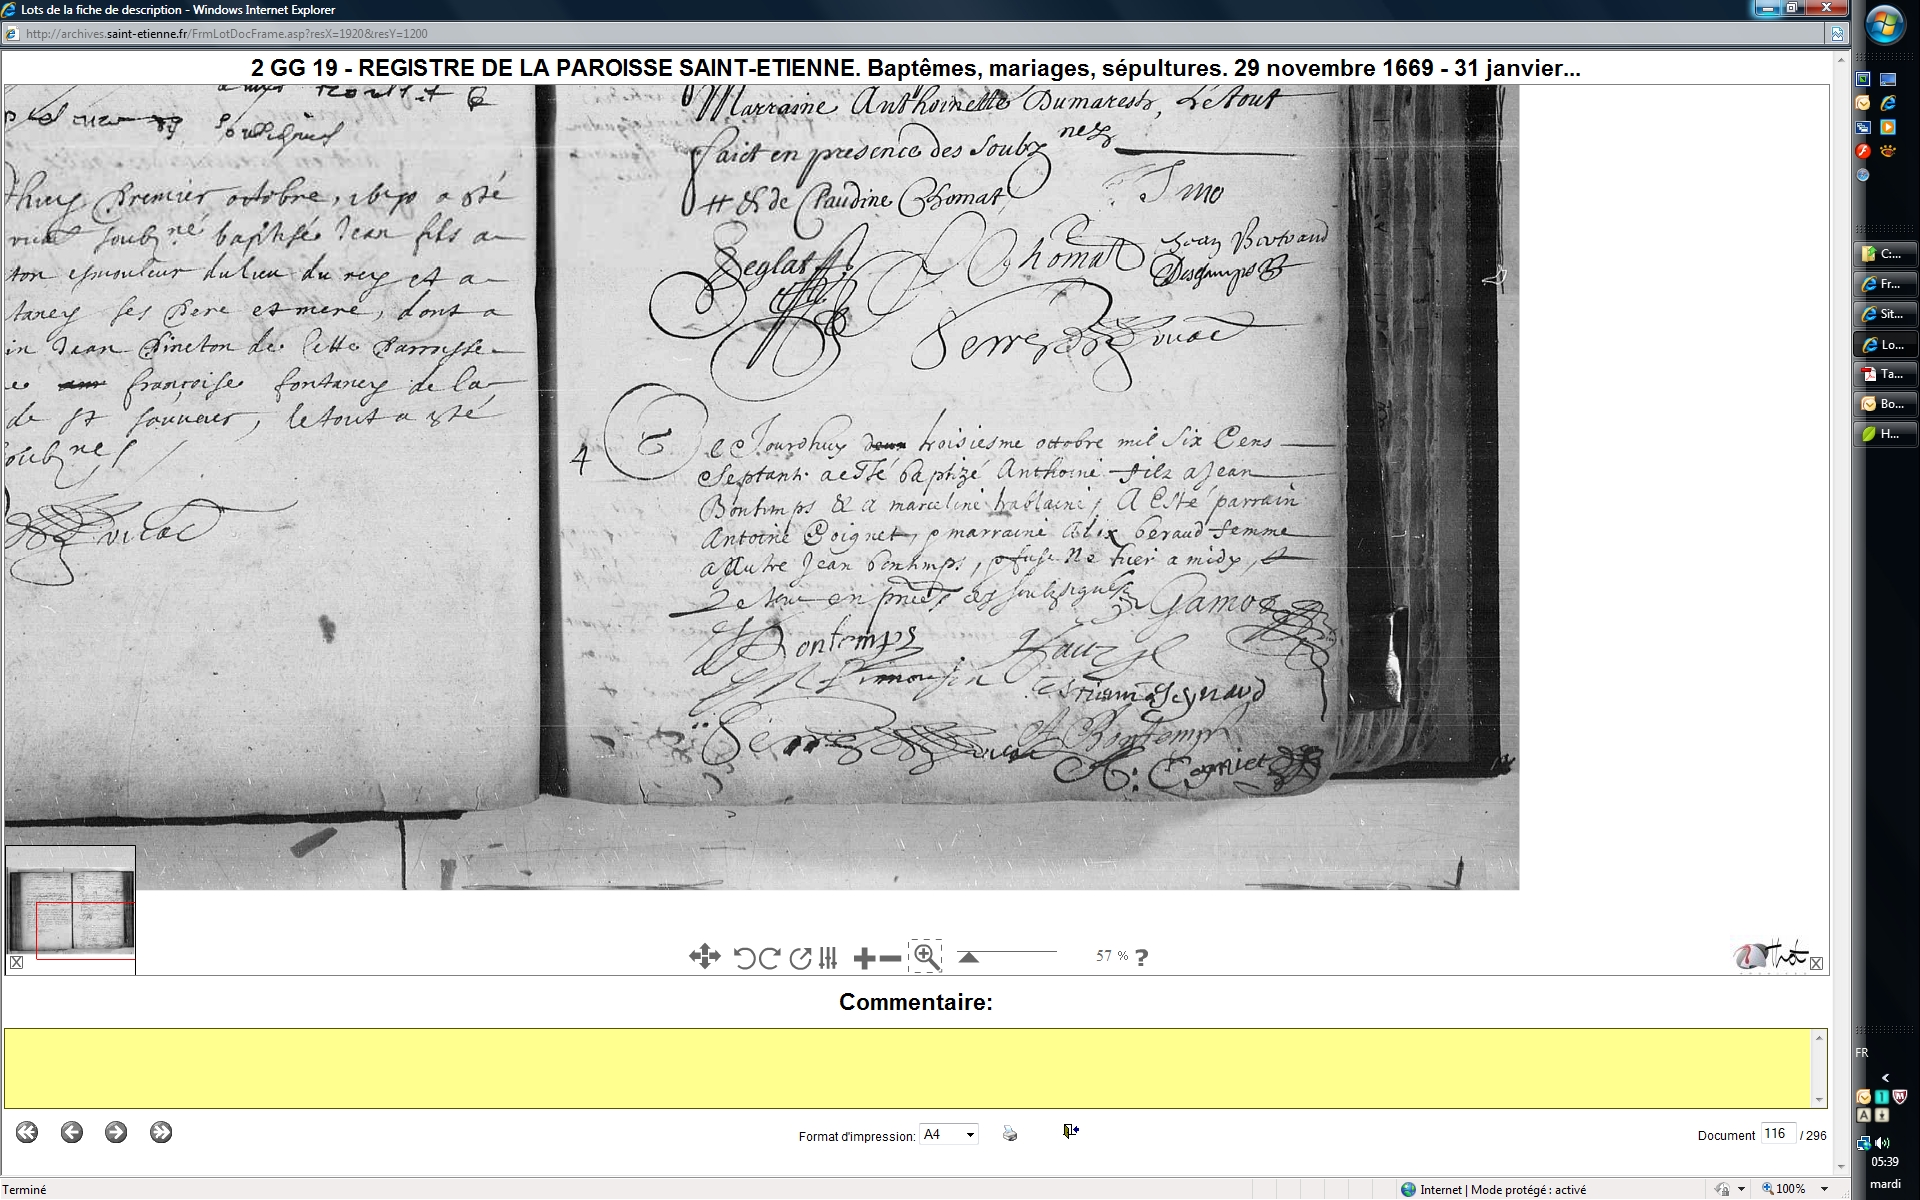 Lots de la fiche de description - Windows Internet Explorer
http://archives.saint-etienne.fr/FrmLotDocFrame.asp?resX=1920&resY=1200
2 GG 19 - REGISTRE DE LA PAROISSE SAINT-ETIENNE. Baptêmes, mariages, sépultures. 29 novembre 1669 - 31 janvier...
soubsignés
thuy premier octobre, 1670 a été
vicaire soubz né baptisé Jean fils a
ton esmouleur du lieu du rey et a
taney ses pere et mere, dont a
in Jean Pineton de cette Parroisse
françoise fontaney de la
de St sauveur, le tout a été
soubznes
vicaire
Marraine Anthoinette Dumarest, Le tout
faict en presence des soubz nez
# & de Claudine Chomat
Seglat
Chomat
Jean Bertrand
Deschamps
Serre
4
Ce Jourdhuy troisiesme octobre mil six Cens
septante a esté baptizé Anthoine filz a Jean
Bontemps & a marceline tablaine, A Esté parrain
Antoine Coignet, & marraine Alix beraud femme
a autre Jean bontemps, & fust Ne hier a midy, &
Le tout en presence des soubsignes
Gamos
Bontemps
Limousin
Serre
Bontemps
A. Cogniet
57 % ?
Commentaire:
Format d'impression: A4
Document 116 / 296
Terminé
Internet | Mode protégé : activé
100%
C:...
Fr...
Sit...
Lo...
Ta...
Bo...
H...
FR
05:39
mardi